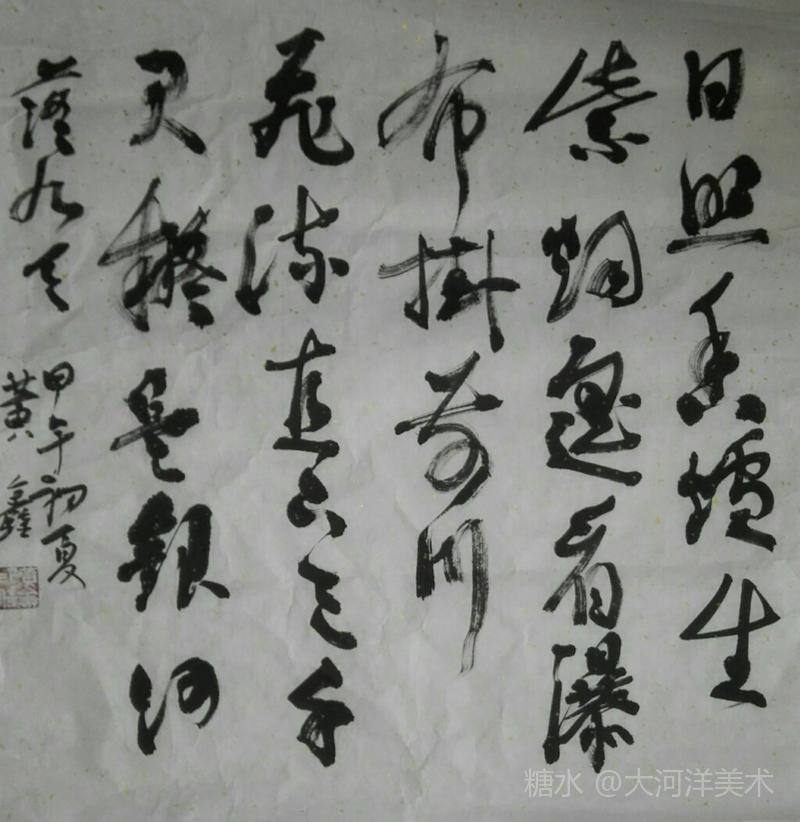 日照香爐生
紫烟遥看瀑
布掛前川
飛流直下三千
尺疑是銀河
落九天
甲午初夏
黄鑫
糖水 @大河洋美术